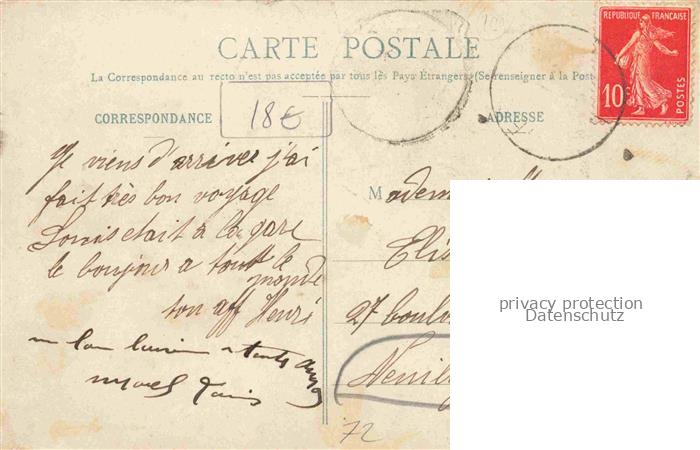 CARTE POSTALE
La Correspondance au recto n'est pas acceptée par tous les Pays Étrangers (Se renseigner à la Post
CORRESPONDANCE
18€
ADRESSE
REPUBLIQUE FRANÇAISE
10c
POSTES
Je viens d'arriver j'ai
fait très bon voyage
Louis etait a la gare
le bonjour a tout le
monde
ton aff Henri
M adem
Elis
27 boul
Neuill
72
privacy protection
Datenschutz